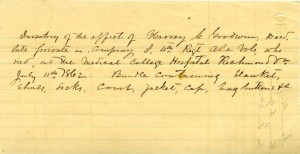 Inventory of the effects of Harvey C. Goodwin, decd.
late private in Company I, 4th Regt Ala Vols, who
died, at the Medical College Hospital Richmond Va
July 11th 1862. Bundle containing blanket,
shoes, socks, comb, jacket, cap, bag buttons &c